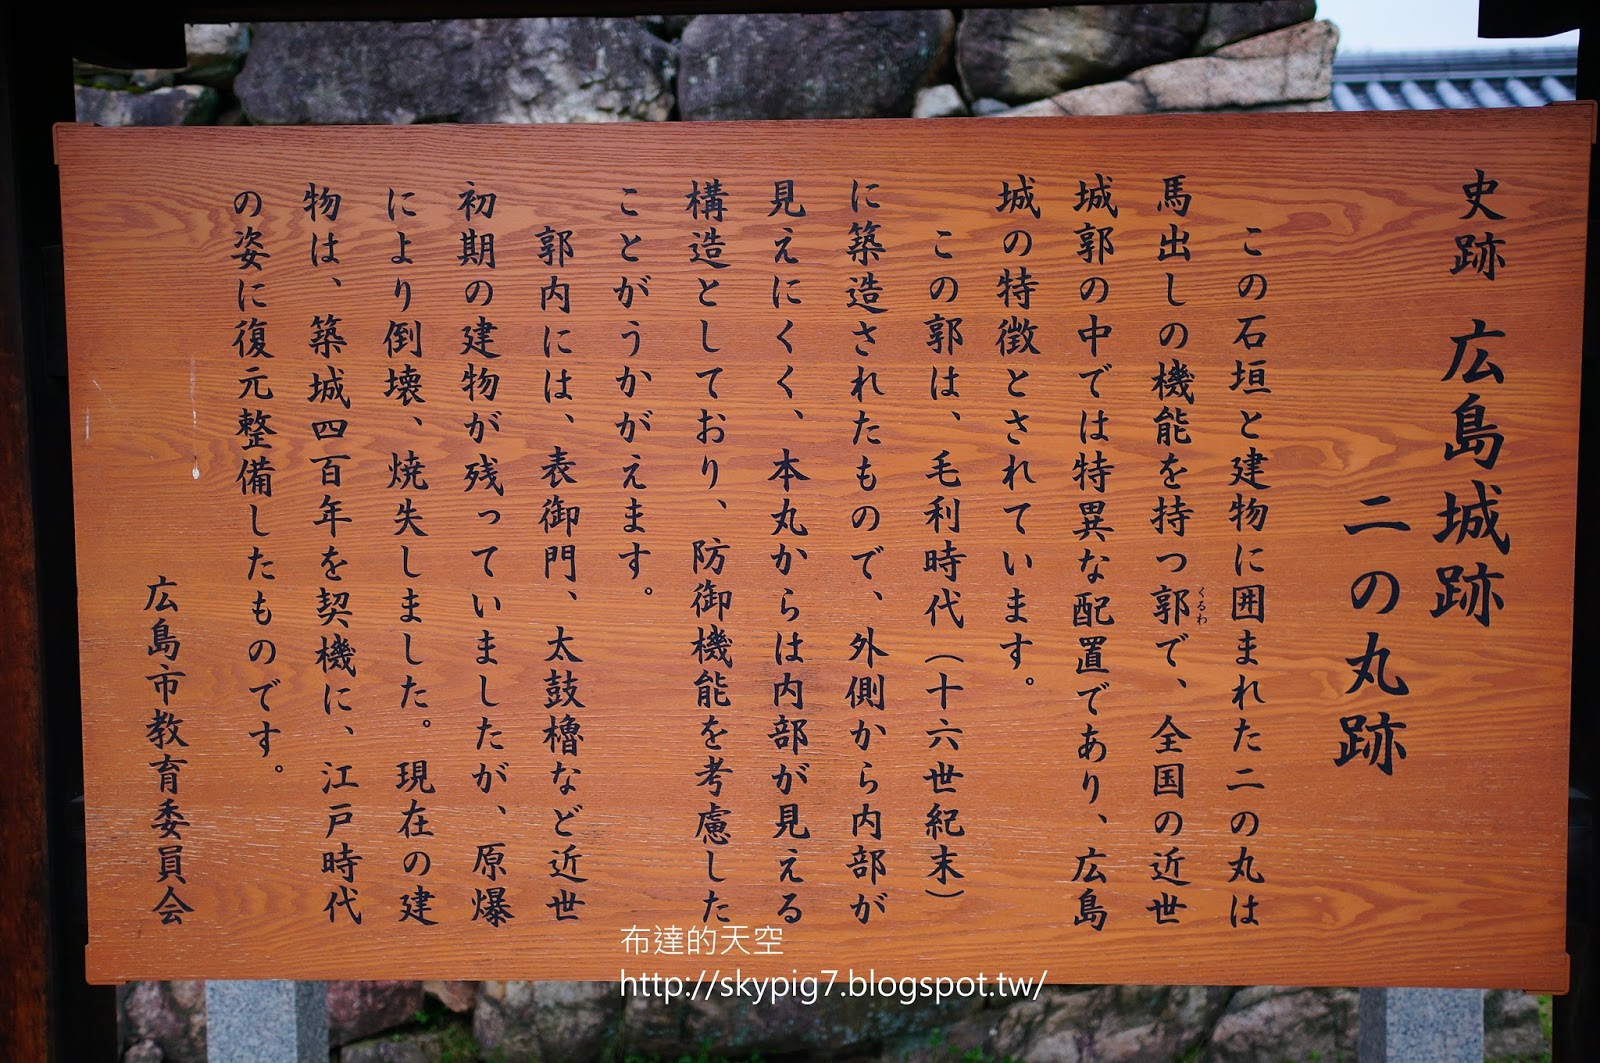 史跡 広島城跡
二の丸跡
この石垣と建物に囲まれた二の丸は
馬出しの機能を持つ郭で、全国の近世
くるわ
城郭の中では特異な配置であり、広島
城の特徴とされています。
この郭は、毛利時代(十六世紀末)
に築造されたもので、外側から内部が
見えにくく、本丸からは内部が見える
構造としており、防御機能を考慮した
ことがうかがえます。
郭内には、表御門、太鼓櫓など近世
初期の建物が残っていましたが、原爆
により倒壊、焼失しました。現在の建
物は、築城四百年を契機に、江戸時代
の姿に復元整備したものです。
広島市教育委員会
布達的天空
http://skypig7.blogspot.tw/